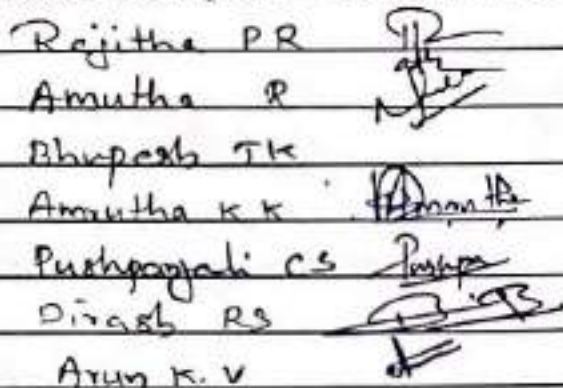 Rajitha PR
Amutha R
Bhupesh TK
Amrutha K K
Pushpanjali CS Pushpa
Dinash RS
Arun K. V